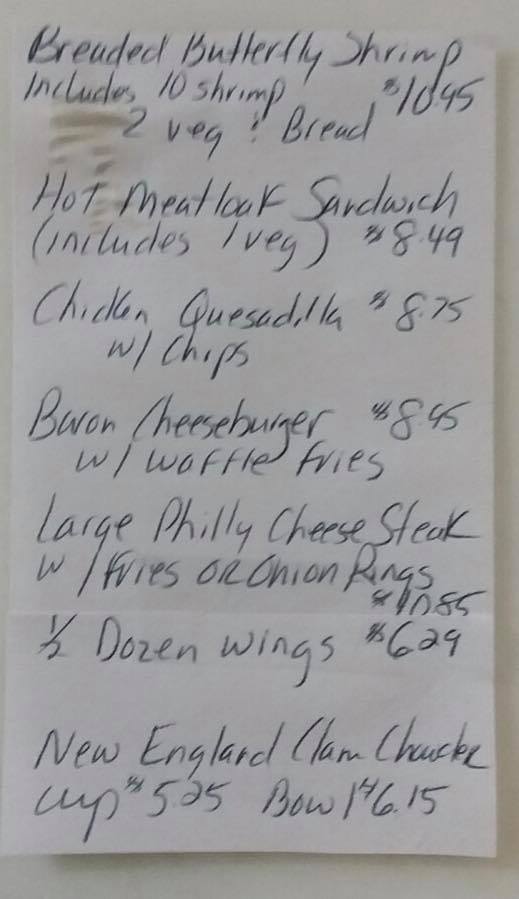 Breaded Butterfly Shrimp
Includes 10 shrimp $10.95
2 veg & Bread
Hot Meatloaf Sandwich
(includes 1 veg) $8.49
Chicken Quesadilla $8.75
w/ Chips
Bacon Cheeseburger $8.95
w/ Waffle Fries
Large Philly Cheese Steak
w/ Fries OR Onion Rings
$10.85
1/2 Dozen Wings $6.29
New England Clam Chowder
Cup $5.25 Bowl $6.15